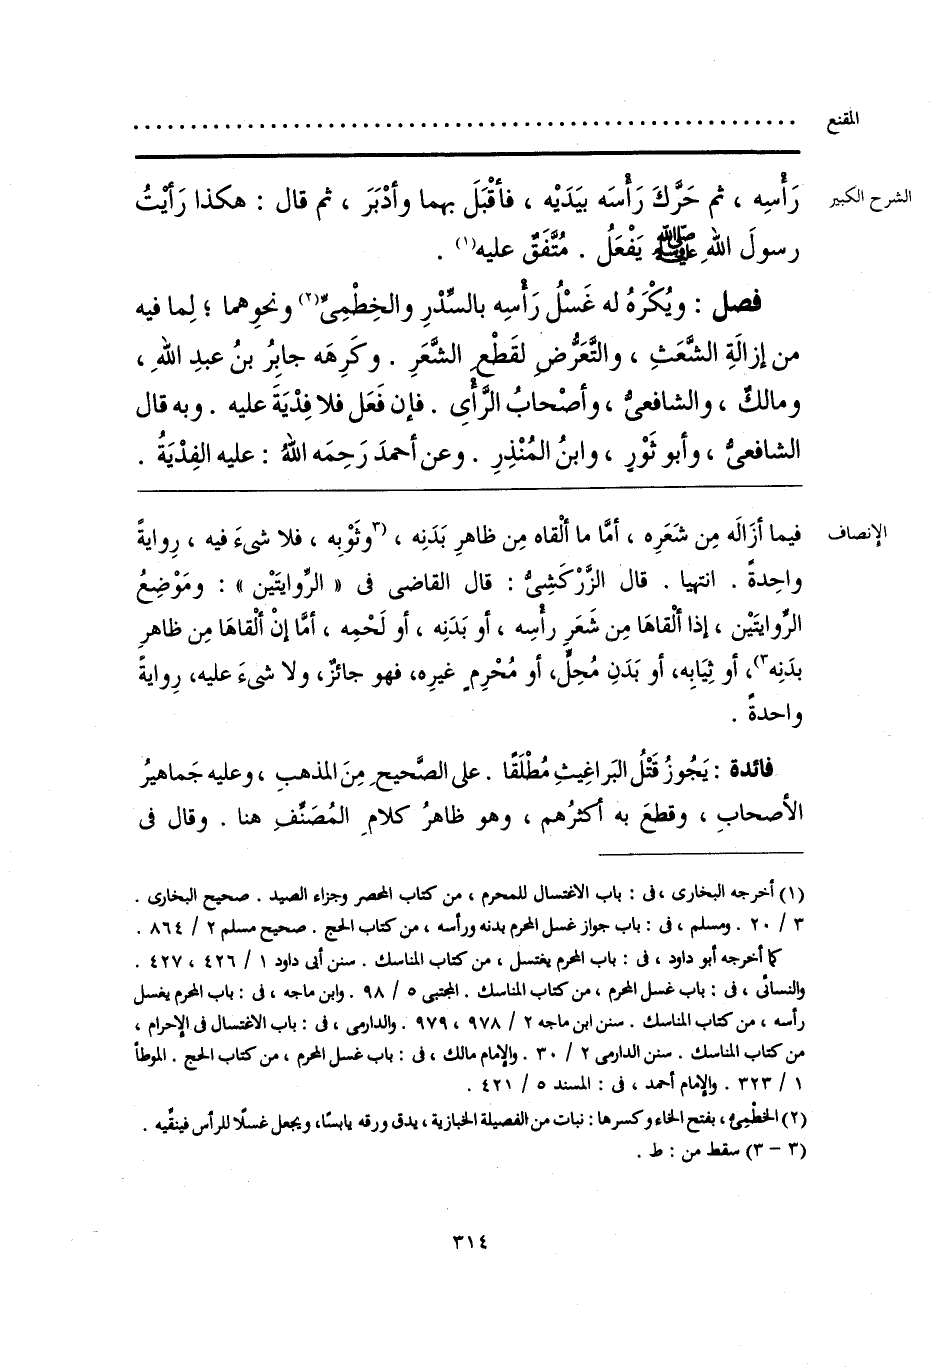 المقنع ............................................................
الشرح الكبير رَأْسِه ، ثم حَرَّكَ رَأْسَه بيَدَيْه ، فأقْبَلَ بهما وأدْبَرَ ، ثم قال : هكذا رَأيْتُ
رسولَ اللهِ ﷺ يَفْعَلُ . مُتَّفَقٌ عليه(١) .
فصل : ويُكْرَهُ له غَسْلُ رَأْسِه بالسِّدْرِ والخِطْمِىِّ(٢) ونحوِهما ؛ لِما فيه
من إزالَةِ الشَّعَثِ ، والتَّعَرُّضِ لقَطْعِ الشَّعَرِ . وكَرِهَه جابِرُ بنُ عبدِ اللهِ ،
ومالكٌ ، والشافعىُّ ، وأصْحابُ الرَّأْىِ . فإن فَعَل فلا فِدْيَةَ عليه . وبه قال
الشافعىُّ ، وأبو ثَوْرٍ ، وابنُ المُنْذِرِ . وعن أحمدَ رَحِمَه اللهُ : عليه الفِدْيَةُ .
الإنصاف فيما أزَالَه مِن شَعَرِه ، أمَّا ما ألْقاه مِن ظاهرِ بَدَنِه ، (٣وثَوْبِه ، فلا شىءَ فيه ، رِوايةً
واحِدةً . انتهيا . قال الزَّرْكَشِىُّ : قال القاضى فى « الرِّوايتَيْن » : ومَوْضِعُ
الرِّوايتَيْن ، إذا ألْقاهَا مِن شَعَرِ رأْسِه ، أو بَدَنِه ، أو لَحْمِه ، أمَّا إنْ ألْقاهَا مِن ظاهرِ
بدَنِه٣)، أو ثِيَابِه، أو بَدَنِ مُحِلٍّ، أو مُحْرِمٍ غيرِه، فهو جائزٌ، ولا شىءَ عليه، رِوايةً
واحدةً .
فائدة : يَجُوزُ قَتْلُ البَراغِيثِ مُطْلَقًا . على الصَّحيحِ مِنَ المذهبِ ، وعليه جَماهيرُ
الأصحابِ ، وقطَعَ به أكثرُهم ، وهو ظاهرُ كلامِ المُصَنِّفِ هنا . وقال فى
(١) أخرجه البخارى ، فى : باب الاغتسال للمحرم ، من كتاب المحصر وجزاء الصيد . صحيح البخارى .
٣ / ٢٠ . ومسلم ، فى : باب جواز غسل المحرم بدنه ورأسه ، من كتاب الحج . صحيح مسلم ٢ / ٨٦٤ .
كما أخرجه أبو داود ، فى : باب المحرم يغتسل ، من كتاب المناسك . سنن أبى داود ١ / ٤٢٦ ، ٤٢٧ .
والنسائى ، فى : باب غسل المحرم ، من كتاب المناسك . المجتبى ٥ / ٩٨ . وابن ماجه ، فى : باب المحرم يغسل
رأسه ، من كتاب المناسك . سنن ابن ماجه ٢ / ٩٧٨ ، ٩٧٩ . والدارمى ، فى : باب الاغتسال فى الإحرام ،
من كتاب المناسك . سنن الدارمى ٢ / ٣٠ . والإمام مالك ، فى : باب غسل المحرم ، من كتاب الحج . الموطأ
١ / ٣٢٣ . والإمام أحمد ، فى : المسند ٥ / ٤٢١ .
(٢) الخطْمِىّ ، بفتح الخاء وكسرها : نبات من الفصيلة الخبازية ، يدق ورقه يابسًا، ويجعل غسلًا للرأس فينقِّيه .
(٣ - ٣) سقط من : ط .
٣١٤